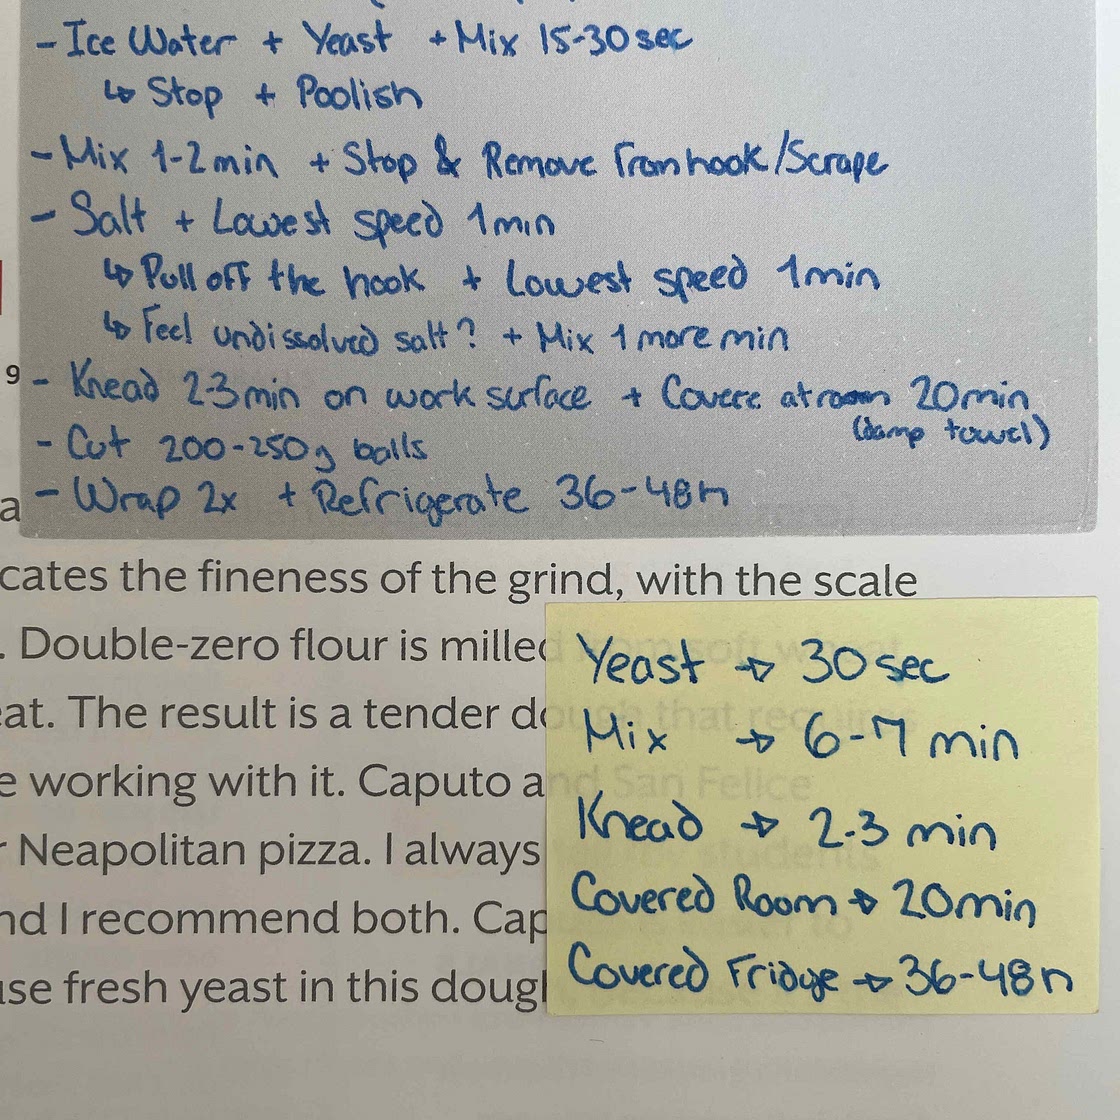 - Ice Water + Yeast + Mix 15-30 sec
↳ Stop + Poolish
- Mix 1-2 min + Stop & Remove from hook/Scrape
- Salt + Lowest speed 1 min
↳ Pull off the hook + Lowest speed 1 min
↳ Feel undissolved salt? + Mix 1 more min
9
- Knead 2-3 min on work surface + Covere at room 20 min
(damp towel)
- Cut 200-250g balls
a
- Wrap 2x + Refrigerate 36-48h
cates the fineness of the grind, with the scale
. Double-zero flour is milled from soft wheat
eat. The result is a tender dough that requires
e working with it. Caputo and San Felice
r Neapolitan pizza. I always
nd I recommend both. Cap
use fresh yeast in this dough
Yeast → 30 sec
Mix → 6-7 min
Knead → 2-3 min
Covered Room → 20 min
Covered Fridge → 36-48h